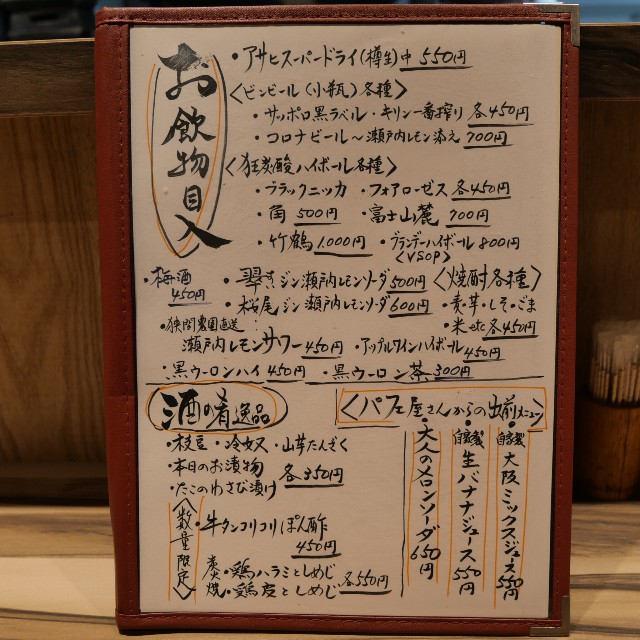 お飲物目入
・アサヒスーパードライ(樽生)中 550円
〈ビンビール(小瓶)各種〉
・サッポロ黒ラベル・キリン一番搾り 各450円
・コロナビール〜瀬戸内レモン添え 700円
〈狂炭酸ハイボール各種〉
・ブラックニッカ ・フォアローゼス 各450円
・角 500円 ・富士山麓 700円
・竹鶴 1,000円 ・ブランデーハイボール 800円
〈VSOP〉
・梅酒
450円
・翠ジン瀬戸内レモンソーダ 500円
・桜尾ジン瀬戸内レモンソーダ 600円
〈焼酎各種〉
・麦・芋・しそ・ごま
・米etc 各450円
農園直送
瀬戸内レモンサワー 450円
・アップルワインハイボール
450円
・黒ウーロンハイ 450円 ・黒ウーロン茶 300円
酒の肴逸品
・枝豆・冷奴・山芋たんざく
・本日のお漬物
・たこのわさび漬け
各350円
〈数量限定〉
・牛タンコリコリぽん酢
450円
炭焼
・鶏ハラミとしめじ
・鶏皮としめじ
各550円
〈パフェ屋さんからの出前メニュー〉
・自家製 大阪ミックスジュース 550円
・自家製 生バナナジュース 550円
・大人のメロンソーダ 650円